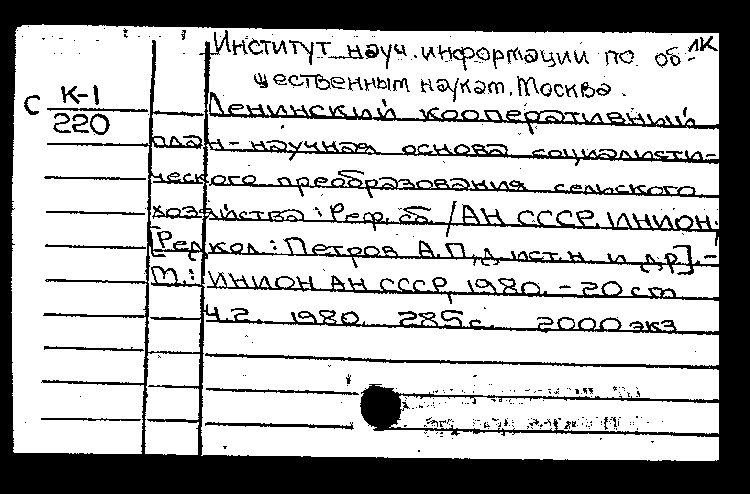 ЛК
Институт науч. информации по об-
щественным наукам. Москва.
С К-1
220
Ленинский кооперативный
план - научная основа социалисти-
ческого преобразования сельского
хозяйства : Реф. сб. / АН СССР. ИНИОН;
[Редкол.: Петров А.П., д. ист. н. и др.]. -
М.: ИНИОН АН СССР, 1980. - 20 см
Ч. 2. 1980. 285 с. 2000 экз